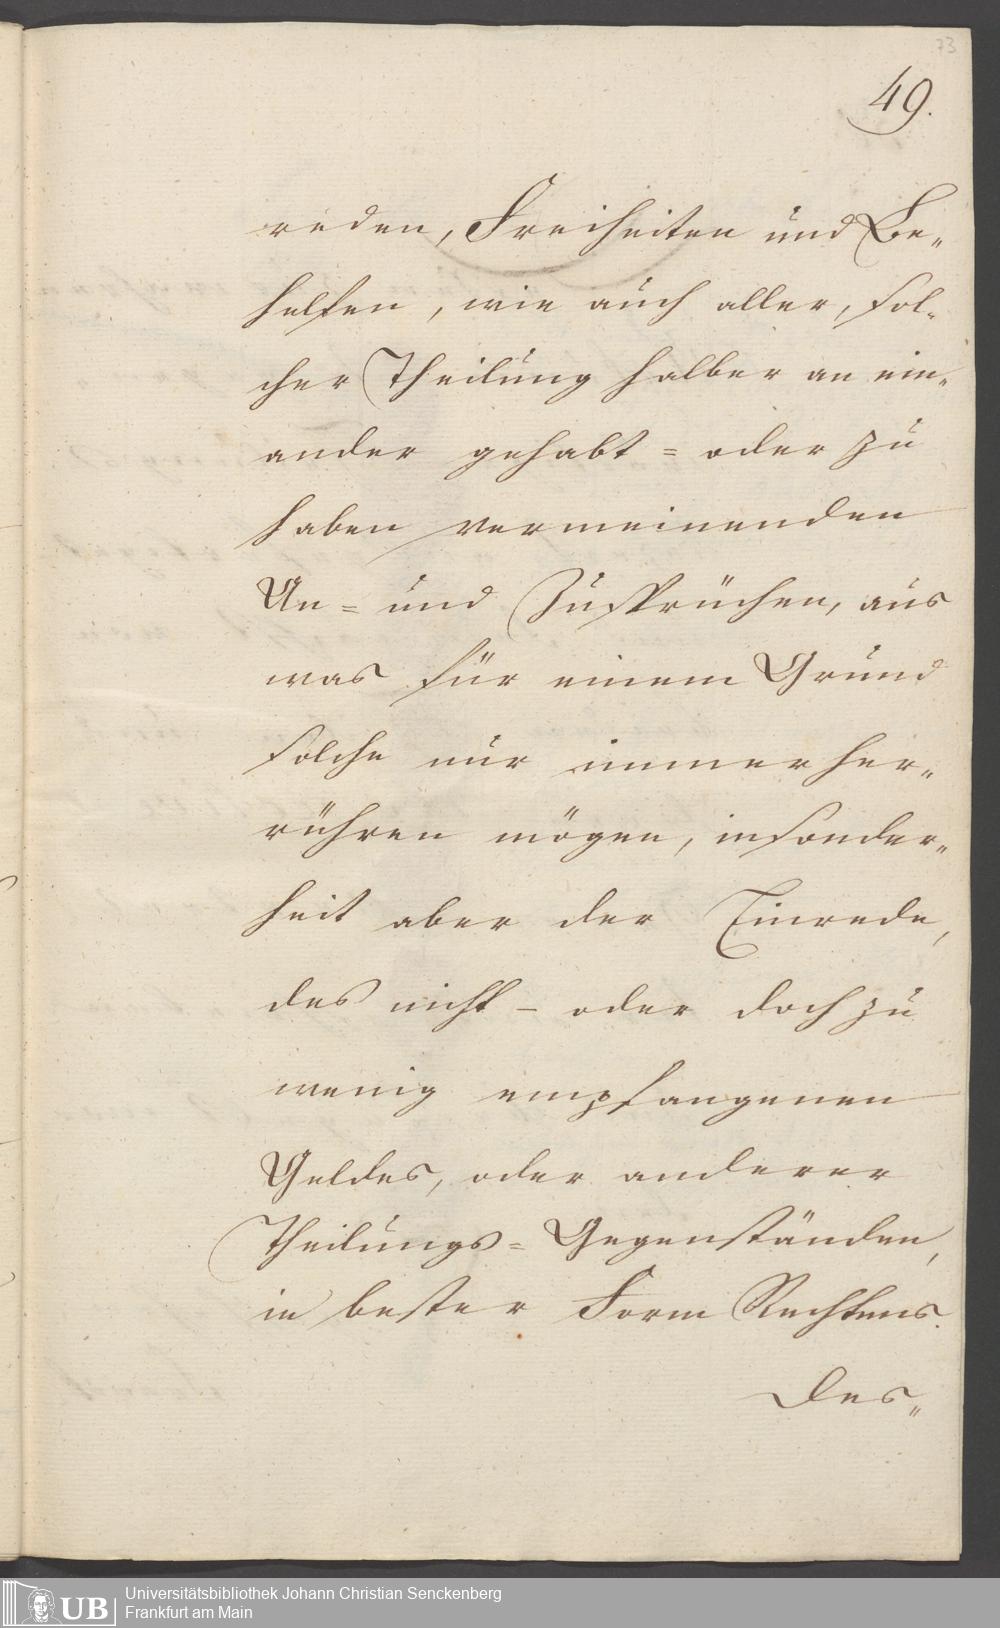 73
49.
reden, Freiheiten und Be„
helfen, wie auch aller, sol„
cher Theilung halber an ein„
ander gehabt = oder zu
haben vermeinenden
An = und Zusprüchen, aus
was für einem Grund
solche nur immer her„
rühren mögen, insonder„
heit aber der Einrede,
des nicht - oder doch zu
wenig empfangenen
Geldes, oder anderer
Theilungs = Gegenständen,
in bester Form Rechtens.
Des„
UB
Universitätsbibliothek Johann Christian Senckenberg
Frankfurt am Main